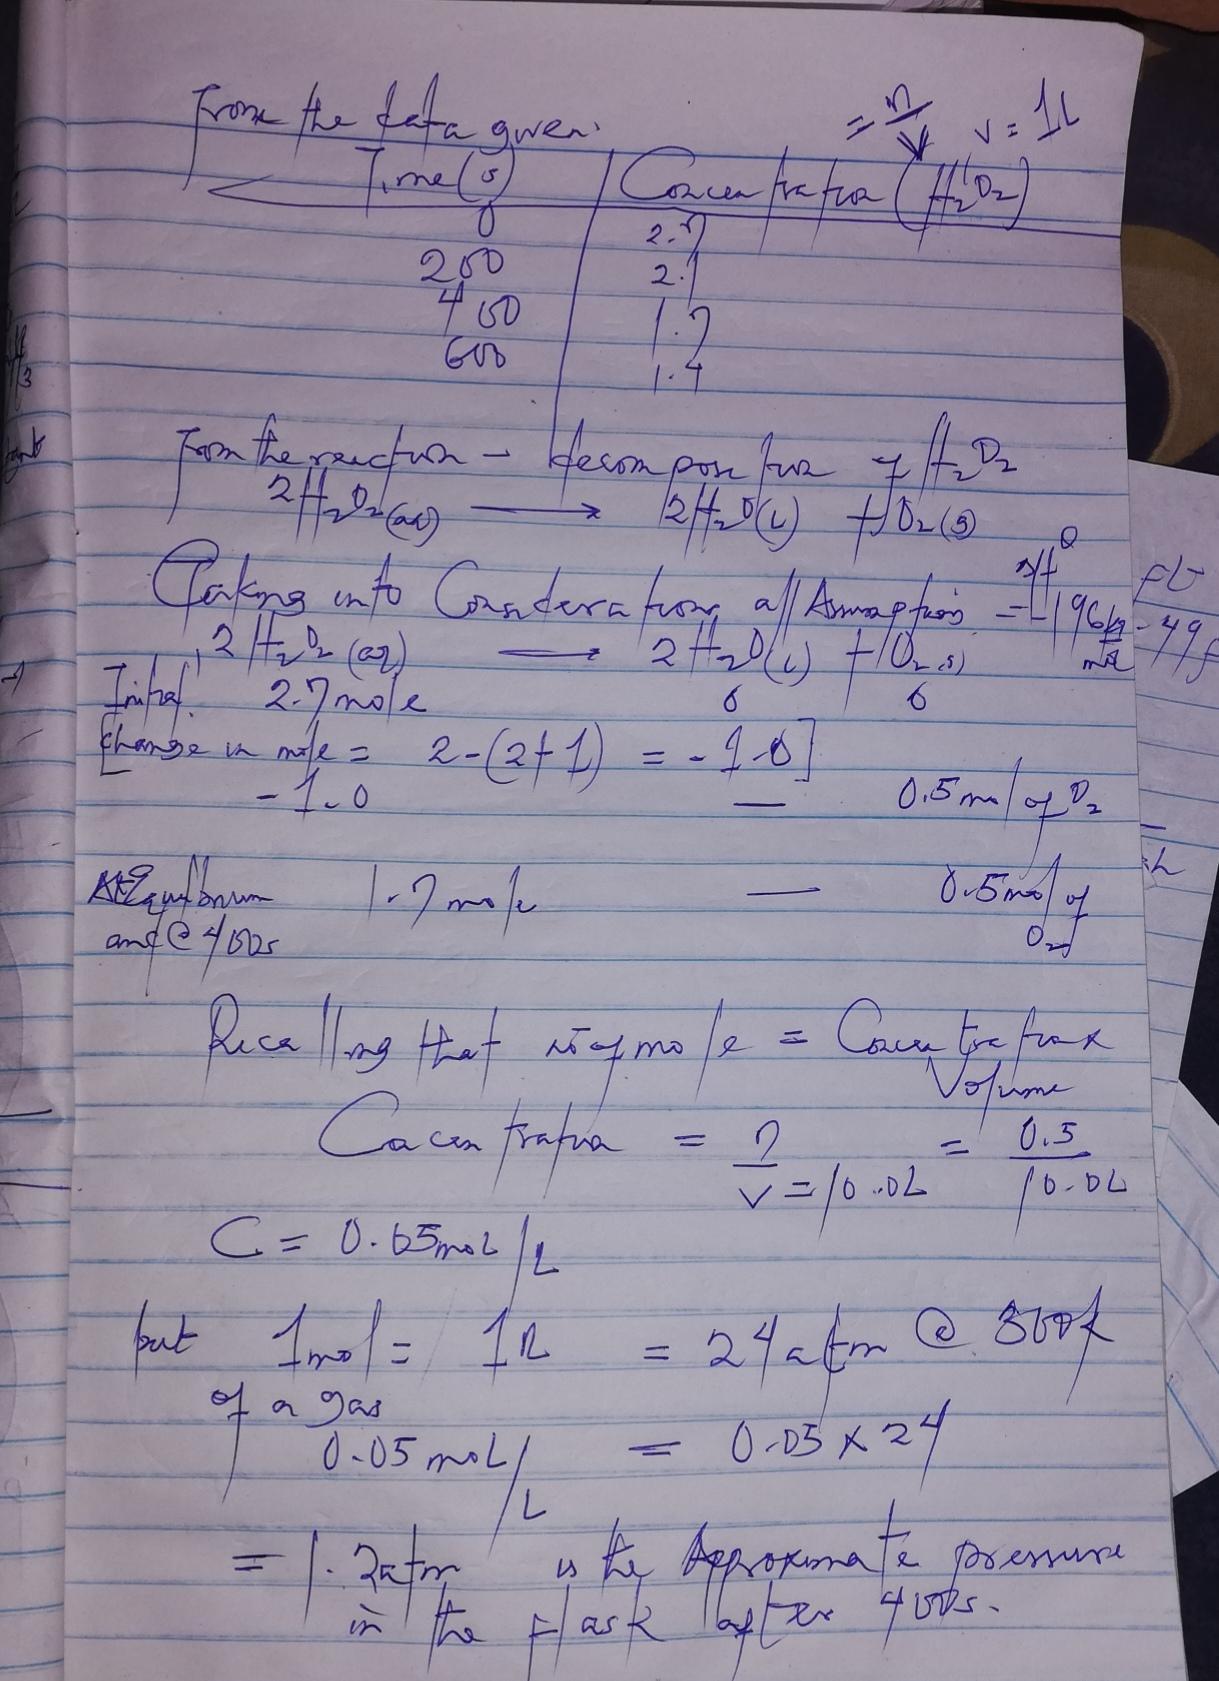 From the data given:
= n/V V = 1L
Time(s) | Concentration (H₂O₂)
0 2.7
200 2.1
400 1.7
600 1.4
From the reaction - decomposition of H₂O₂
2H₂O₂(aq) → 2H₂O(l) + O₂(g)
Taking into Considerations all Assumptions = ΔH° -196kJ/mol
2H₂O₂(aq) → 2H₂O(l) + O₂(g)
Initial: 2.7 mole 0 0
[Change in mole = 2-(2+1) = -1.0]
-1.0 — 0.5 mol of O₂
At Equilibrium 1.7 mole — 0.5 mol of
and @ 400s O₂
Recalling that no of mole = Concentration
Volume
Concentration = n/V = 10.0L = 0.5/10.0L
C = 0.05 mol/L
but 1 mol = 1n = 24 atm @ 300K
of a gas
0.05 mol/L = 0.05 x 24
= 1.2 atm is the Approximate pressure
in the flask after 400s.